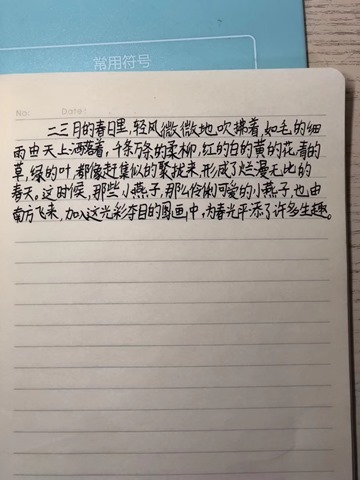 常用符号
No:
Date:
二三月的春日里,轻风微微地吹拂着,如毛的细
雨由天上洒落着,千条万条的柔柳,红的白的黄的花,青的
草,绿的叶,都像赶集似的聚拢来,形成了烂漫无比的
春天。这时候,那些小燕子,那么伶俐可爱的小燕子,也由
南方飞来,加入这光彩夺目的图画中,为春光平添了许多生趣。